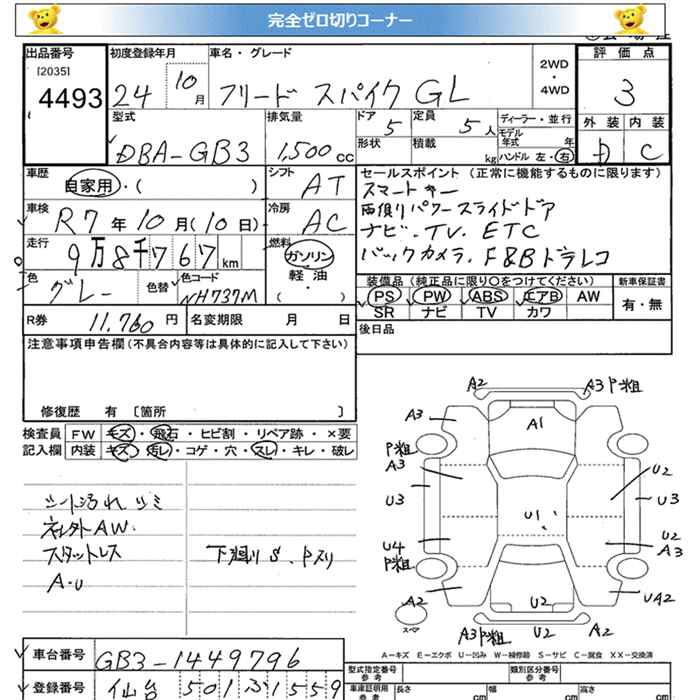 完全ゼロ切りコーナー
出品番号
[2035]
4493
初度登録年月
24 10月
車名・グレード
フリード スパイク GL
2WD
・
4WD
評価点
3
外装 内装
D C
型式
DBA-GB3
排気量
1,500 cc
ドア
5
形状
定員
5 人
積載
kg
ディーラー・並行
モデル年式 年
ハンドル 左・右
車歴
自家用・( )
シフト
AT
セールスポイント (正常に機能するものに限ります)
スマートキー
両側パワースライドドア
ナビ・TV. ETC
バックカメラ. F&Bドラレコ
車検
R7年10月(10日)
冷房
AC
走行
9万8千767km
燃料
ガソリン
軽油
( ・ )
色
グレー
色替
色コード
NH737M
装備品 (純正品に限り○をつけてください)
PS PW ABS エアB AW
SR ナビ TV カワ
新車保証書
有・無
R券 11,760 円
名変期限 月 日
後日品
注意事項申告欄 (不具合内容等は具体的に記入して下さい)
修復歴 有 〔箇所 〕
検査員
記入欄
FW キズ・飛石・ヒビ割・リペア跡・×要
内装 キズ・汚レ・コゲ・穴・スレ・キレ・破レ
シート汚れ シミ
AW.
スタットレス
A・U
下廻りS. Pスリ
A2
A3 P粗
A3
A1
P粗
A3
U2
U3
U3
U1
U4
P粗
U2
A3
U2
UA2
スペア
A3 P粗
U2
A2
A―キズ E―エクボ U―凹み W―補修跡 S―サビ C―腐食 XX―交換済
車台番号 GB3-1449796
登録番号 仙台 501 31559
型式指定番号
参考
類別区分番号
参考
車庫証明用
参考
長さ cm
幅 cm
高さ cm